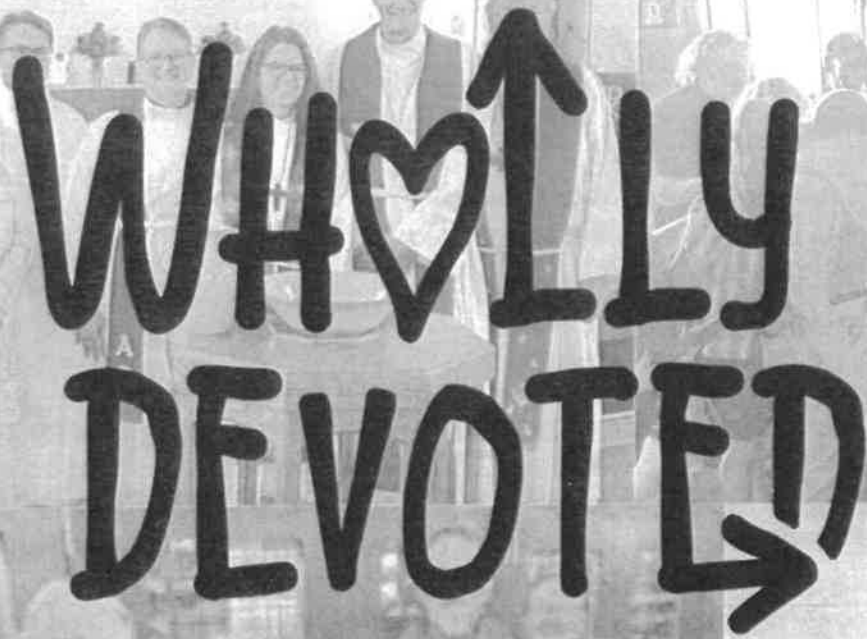 WHOLLY
DEVOTED